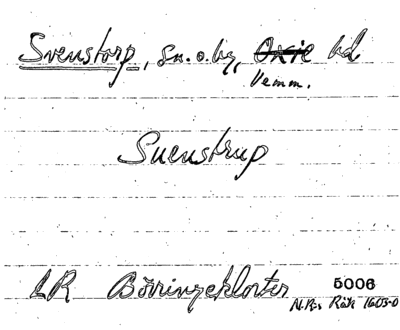 Svenstorp, sn. o. by, Oxie hd
Vemm.
Suenstrup
LR Börringekloster 5006
N.R:s Räk 1603-0